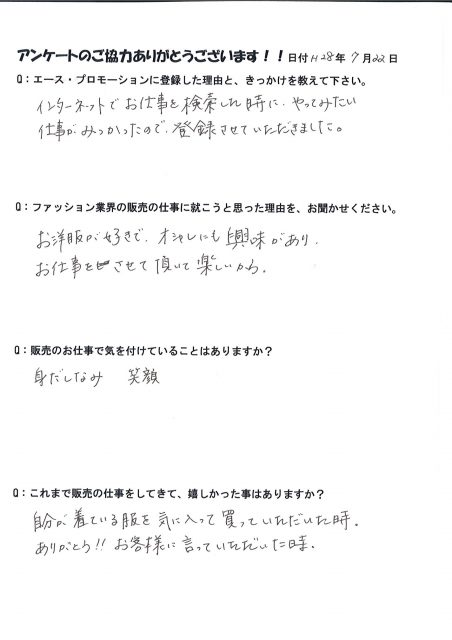 アンケートのご協力ありがとうございます！！日付H28年7月22日
Q：エース・プロモーションに登録した理由と、きっかけを教えて下さい。
インターネットでお仕事を検索した時に、やってみたい
仕事がみつかったので、登録させていただきました。
Q：ファッション業界の販売の仕事に就こうと思った理由を、お聞かせください。
お洋服が好きで、オシャレにも興味があり、
お仕事をさせて頂いて楽しいから。
Q：販売のお仕事で気を付けていることはありますか？
身だしなみ　笑顔
Q：これまで販売の仕事をしてきて、嬉しかった事はありますか？
自分が着ている服を気に入って買っていただいた時。
ありがとう!! お客様に言っていただいた時。